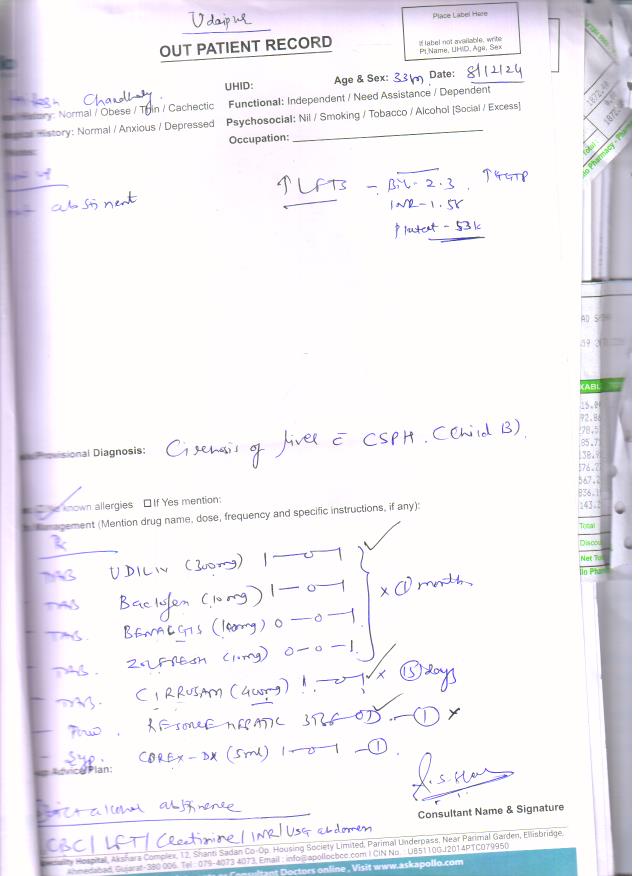 Udaipur
OUT PATIENT RECORD
Place Label Here
If label not available, write
Pt.Name, UHID, Age, Sex
UHID:
Age & Sex: 33m Date: 8/12/24
Chandhary
History: Normal / Obese / Thin / Cachectic
Functional: Independent / Need Assistance / Dependent
History: Normal / Anxious / Depressed
Psychosocial: Nil / Smoking / Tobacco / Alcohol [Social / Excess]
Occupation:
abstinent
↑LFTs - Bil - 2.3, ↑GGTP
INR - 1.58
platet - 53k
Provisional Diagnosis: Cirrhosis of liver c̄ CSPH. (Child B).
known allergies ☐ If Yes mention:
Management (Mention drug name, dose, frequency and specific instructions, if any):
Rx
TAB UDILIV (300mg) 1-0-1
TAB Baclofen (10mg) 1-0-1
TAB. (100mg) 0-0-1
TAB. ZOLFRESH (10mg) 0-0-1
x ① months
TAB. CIRRUSAM (400mg) 1-0-1 x ⑮ days
Pow. HEPATIC OD - ① x
Syp. COREX-DX (5ml) 1-0-1 - ①.
Advice/Plan:
Strict alcohol abstinence
Consultant Name & Signature
CBC / LFT / Creatinine / INR / USG abdomen
Speciality Hospital, Akshara Complex, 12, Shanti Sadan Co-Op. Housing Society Limited, Parimal Underpass, Near Parimal Garden, Ellisbridge,
Ahmedabad, Gujarat-380 006. Tel : 079-4073 4073, Email : info@apollocbcc.com I CIN No. : U85110GJ2014PTC079950
Consultant Doctors online, Visit www.askapollo.com
Total
Net